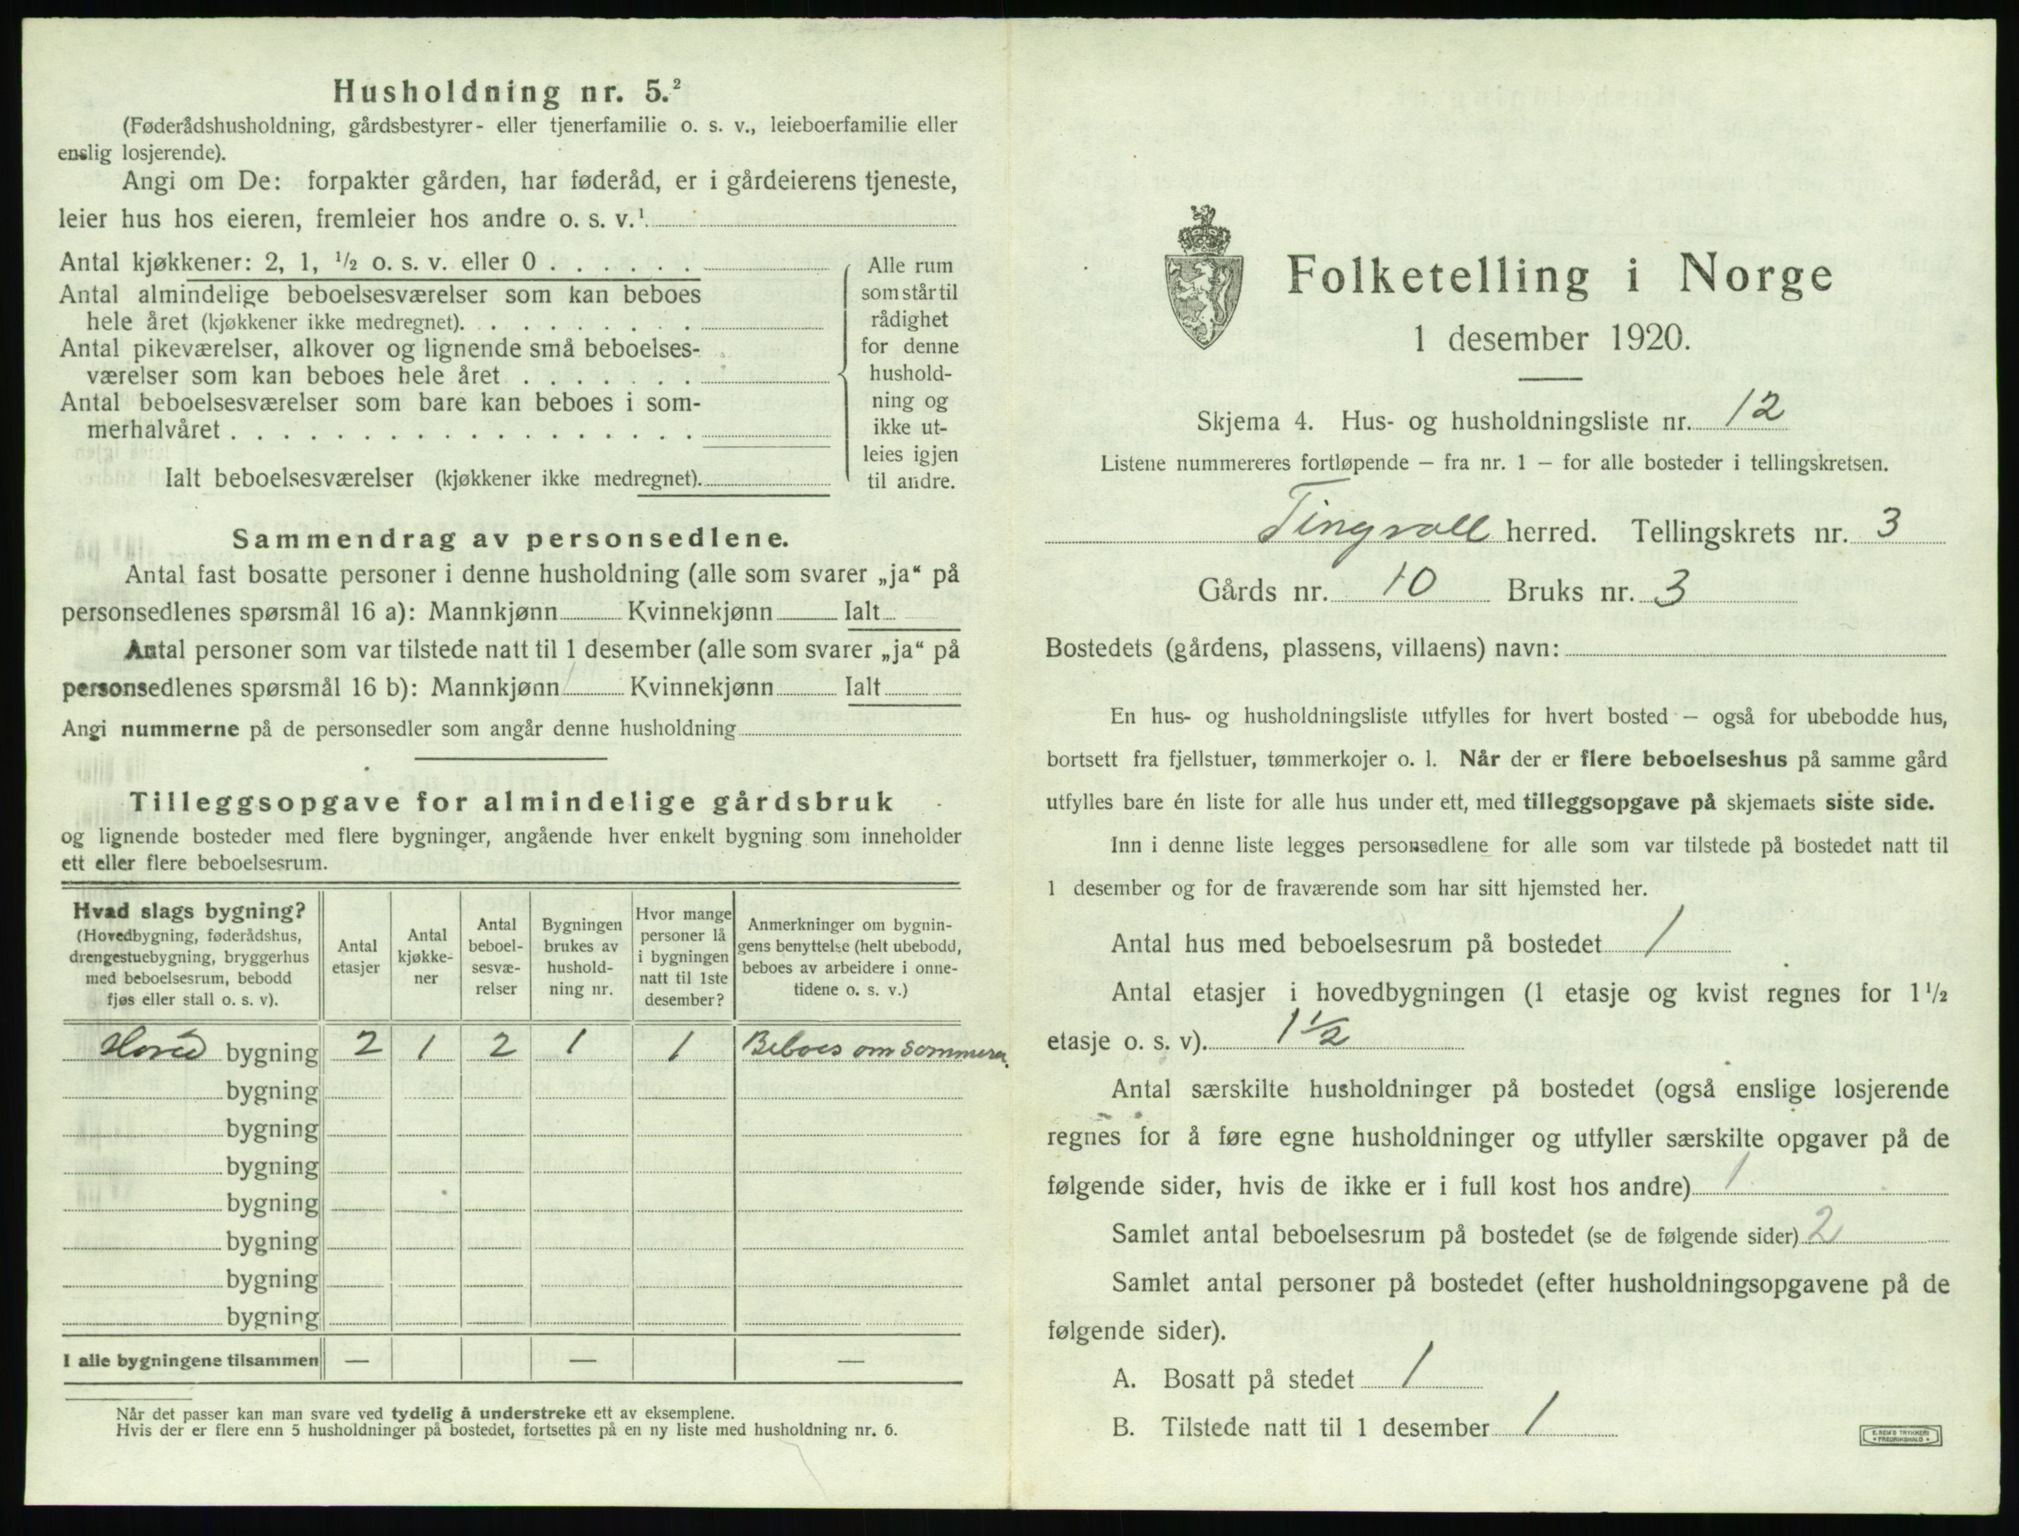 Husholdning nr. 5.²
(Føderådshusholdning, gårdsbestyrer- eller tjenerfamilie o. s. v., leieboerfamilie eller
enslig losjerende).
Angi om De: forpakter gården, har føderåd, er i gårdeierens tjeneste,
leier hus hos eieren, fremleier hos andre o. s. v.¹
Antal kjøkkener: 2, 1, ½ o. s. v. eller 0 . . . . . .
Antal almindelige beboelsesværelser som kan beboes
hele året (kjøkkener ikke medregnet). . . . . . . . . .
Antal pikeværelser, alkover og lignende små beboelses-
værelser som kan beboes hele året . . . . . . .
Antal beboelsesværelser som bare kan beboes i som-
merhalvåret . . . . . . . . . . . . . . . . . .
Ialt beboelsesværelser (kjøkkener ikke medregnet).
Alle rum
som står til
rådighet
for denne
hushold-
ning og
ikke ut-
leies igjen
til andre.
Sammendrag av personsedlene.
Antal fast bosatte personer i denne husholdning (alle som svarer „ja“ på
personsedlenes spørsmål 16 a): Mannkjønn Kvinnekjønn Ialt
Antal personer som var tilstede natt til 1 desember (alle som svarer „ja“ på
personsedlenes spørsmål 16 b): Mannkjønn Kvinnekjønn Ialt
Angi nummerne på de personsedler som angår denne husholdning
Tilleggsopgave for almindelige gårdsbruk
og lignende bosteder med flere bygninger, angående hver enkelt bygning som inneholder
ett eller flere beboelsesrum.
Hvad slags bygning?
(Hovedbygning, føderådshus,
drengestuebygning, bryggerhus
med beboelsesrum, bebodd
fjøs eller stall o. s. v).
Antal
etasjer
Antal
kjøkke-
ner
Antal
beboel-
sesvæ-
relser
Bygningen
brukes av
hushold-
ning nr.
Hvor mange
personer lå
i bygningen
natt til 1ste
desember?
Anmerkninger om bygnin-
gens benyttelse (helt ubebodd,
beboes av arbeidere i onne-
tidene o. s. v.)
Hoved bygning 2 1 2 1 1 Beboes om sommeren
bygning
bygning
bygning
bygning
bygning
bygning
bygning
I alle bygningene tilsammen — — —
Når det passer kan man svare ved tydelig å understreke ett av eksemplene.
Hvis der er flere enn 5 husholdninger på bostedet, fortsettes på en ny liste med husholdning nr. 6.
Folketelling i Norge
1 desember 1920.
Skjema 4. Hus- og husholdningsliste nr. 12
Listene nummereres fortløpende – fra nr. 1 – for alle bosteder i tellingskretsen.
Tingvoll herred. Tellingskrets nr. 3
Gårds nr. 10 Bruks nr. 3
Bostedets (gårdens, plassens, villaens) navn:
En hus- og husholdningsliste utfylles for hvert bosted – også for ubebodde hus,
bortsett fra fjellstuer, tømmerkojer o. l. Når der er flere beboelseshus på samme gård
utfylles bare én liste for alle hus under ett, med tilleggsopgave på skjemaets siste side.
Inn i denne liste legges personsedlene for alle som var tilstede på bostedet natt til
1 desember og for de fraværende som har sitt hjemsted her.
Antal hus med beboelsesrum på bostedet 1
Antal etasjer i hovedbygningen (1 etasje og kvist regnes for 1½
etasje o. s. v). 1½
Antal særskilte husholdninger på bostedet (også enslige losjerende
regnes for å føre egne husholdninger og utfyller særskilte opgaver på de
følgende sider, hvis de ikke er i full kost hos andre) 1
Samlet antal beboelsesrum på bostedet (se de følgende sider) 2
Samlet antal personer på bostedet (efter husholdningsopgavene på de
følgende sider).
A. Bosatt på stedet 1
B. Tilstede natt til 1 desember 1
E. SEM'S TRYKKERI
• FREDRIKSHALD •